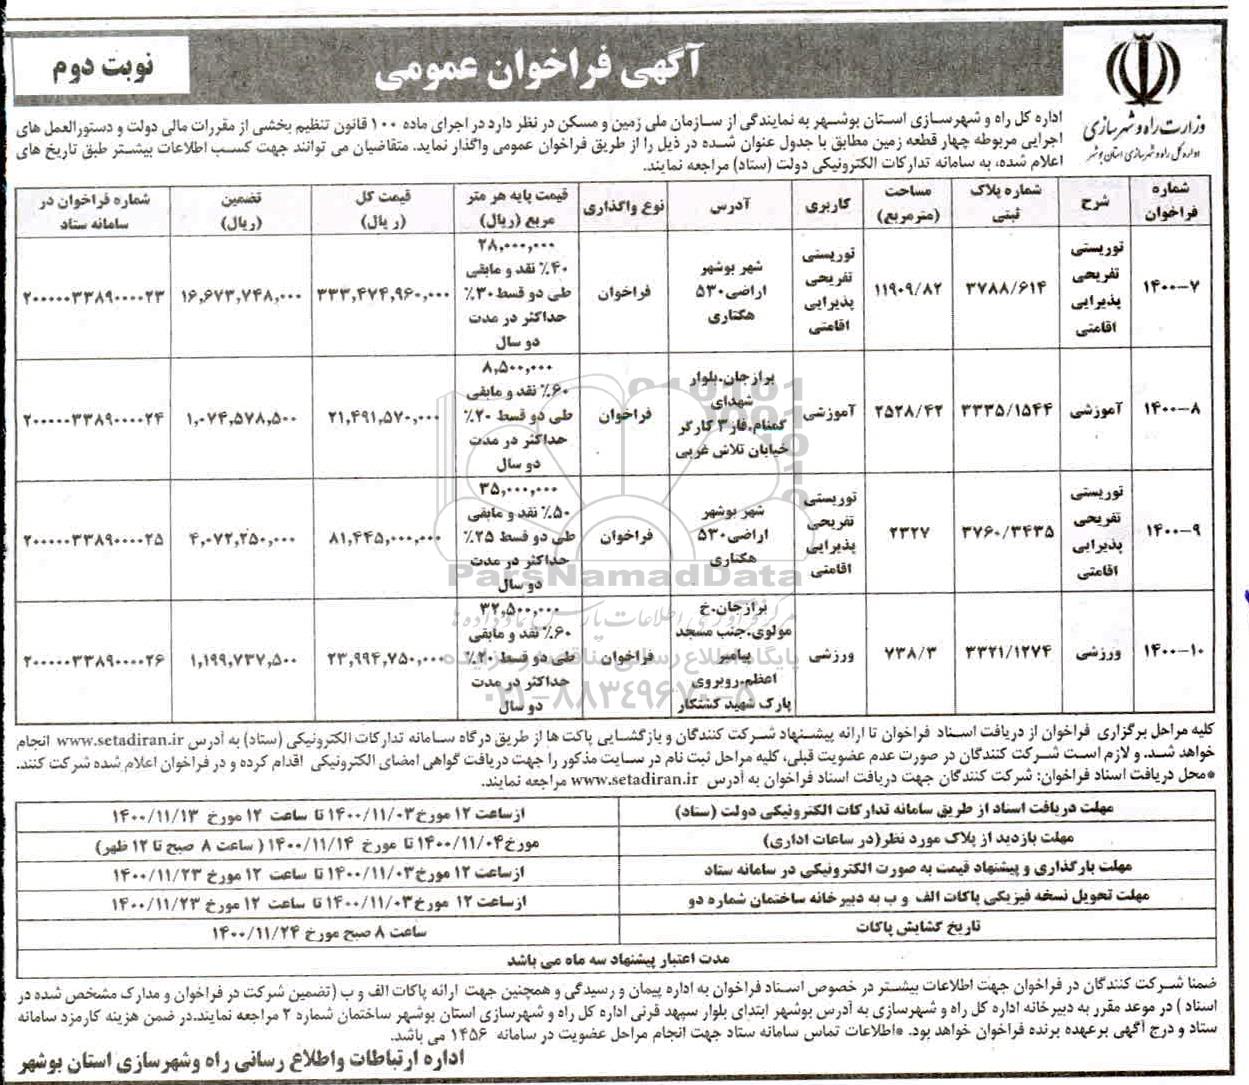 آگهی فراخوان عمومی
نوبت دوم
وزارت راه و شهرسازی
اداره کل راه و شهرسازی استان بوشهر
اداره کل راه و شهرسازی استان بوشهر به نمایندگی از سازمان ملی زمین و مسکن در نظر دارد در اجرای ماده ۱۰۰ قانون تنظیم بخشی از مقررات مالی دولت و دستورالعمل های
اجرایی مربوطه چهار قطعه زمین مطابق با جدول عنوان شده در ذیل را از طریق فراخوان عمومی واگذار نماید. متقاضیان می توانند جهت کسب اطلاعات بیشتر طبق تاریخ های
اعلام شده، به سامانه تدارکات الکترونیکی دولت (ستاد) مراجعه نمایند.
شماره فراخوان | شرح | شماره پلاک ثبتی | مساحت (مترمربع) | کاربری | آدرس | نوع واگذاری | قیمت پایه هر متر مربع (ریال) | قیمت کل (ریال) | تضمین (ریال) | شماره فراخوان در سامانه ستاد
۱۴۰۰-۷ | توریستی تفریحی پذیرایی اقامتی | ۳۷۸۸/۶۱۴ | ۱۱۹۰۹/۸۲ | توریستی تفریحی پذیرایی اقامتی | شهر بوشهر اراضی ۵۳۰ هکتاری | فراخوان | ۲۸,۰۰۰,۰۰۰ ۴۰٪ نقد و مابقی طی دو قسط ۳۰٪ حداکثر در مدت دو سال | ۳۳۳,۴۷۴,۹۶۰,۰۰۰ | ۱۶,۶۷۳,۷۴۸,۰۰۰ | ۲۰۰۰۰۰۳۳۸۹۰۰۰۰۲۳
۱۴۰۰-۸ | آموزشی | ۳۳۳۵/۱۵۴۴ | ۲۵۲۸/۴۲ | آموزشی | برازجان.بلوار شهدای گمنام.فاز ۳ کارگر خیابان تلاش غربی | فراخوان | ۸,۵۰۰,۰۰۰ ۶۰٪ نقد و مابقی طی دو قسط ۲۰٪ حداکثر در مدت دو سال | ۲۱,۴۹۱,۵۷۰,۰۰۰ | ۱,۰۷۴,۵۷۸,۵۰۰ | ۲۰۰۰۰۰۳۳۸۹۰۰۰۰۲۴
۱۴۰۰-۹ | توریستی تفریحی پذیرایی اقامتی | ۳۷۶۰/۳۴۳۵ | ۲۳۲۷ | توریستی تفریحی پذیرایی اقامتی | شهر بوشهر اراضی ۵۳۰ هکتاری | فراخوان | ۳۵,۰۰۰,۰۰۰ ۵۰٪ نقد و مابقی طی دو قسط ۲۵٪ حداکثر در مدت دو سال | ۸۱,۴۴۵,۰۰۰,۰۰۰ | ۴,۰۷۲,۲۵۰,۰۰۰ | ۲۰۰۰۰۰۳۳۸۹۰۰۰۰۲۵
۱۴۰۰-۱۰ | ورزشی | ۳۳۲۱/۱۲۷۴ | ۷۳۸/۳ | ورزشی | برازجان.خ مولوی.جنب مسجد پیامبر اعظم.روبروی پارک شهید کشتکار | فراخوان | ۳۲,۵۰۰,۰۰۰ ۶۰٪ نقد و مابقی طی دو قسط ۲۰٪ حداکثر در مدت دو سال | ۲۳,۹۹۴,۷۵۰,۰۰۰ | ۱,۱۹۹,۷۳۷,۵۰۰ | ۲۰۰۰۰۰۳۳۸۹۰۰۰۰۲۶
ParsNamadData
پایگاه اطلاع رسانی مناقصه و مزایده
۰۲۱-۸۸۳۴۹۶۷۰-۵
کلیه مراحل برگزاری فراخوان از دریافت اسناد فراخوان تا ارائه پیشنهاد شرکت کنندگان و بازگشایی پاکت ها از طریق درگاه سامانه تدارکات الکترونیکی (ستاد) به آدرس www.setadiran.ir انجام
خواهد شد. و لازم است شرکت کنندگان در صورت عدم عضویت قبلی، کلیه مراحل ثبت نام در سایت مذکور را جهت دریافت گواهی امضای الکترونیکی اقدام کرده و در فراخوان اعلام شده شرکت کنند.
*محل دریافت اسناد فراخوان: شرکت کنندگان جهت دریافت اسناد فراخوان به آدرس www.setadiran.ir مراجعه نمایند.
مهلت دریافت اسناد از طریق سامانه تدارکات الکترونیکی دولت (ستاد) | از ساعت ۱۲ مورخ ۱۴۰۰/۱۱/۰۳ تا ساعت ۱۲ مورخ ۱۴۰۰/۱۱/۱۳
مهلت بازدید از پلاک مورد نظر (در ساعات اداری) | مورخ ۱۴۰۰/۱۱/۰۴ تا مورخ ۱۴۰۰/۱۱/۱۴ (ساعت ۸ صبح تا ۱۲ ظهر)
مهلت بارگذاری و پیشنهاد قیمت به صورت الکترونیکی در سامانه ستاد | از ساعت ۱۲ مورخ ۱۴۰۰/۱۱/۰۳ تا ساعت ۱۲ مورخ ۱۴۰۰/۱۱/۲۳
مهلت تحویل نسخه فیزیکی پاکات الف و ب به دبیرخانه ساختمان شماره دو | از ساعت ۱۲ مورخ ۱۴۰۰/۱۱/۰۳ تا ساعت ۱۲ مورخ ۱۴۰۰/۱۱/۲۳
تاریخ گشایش پاکات | ساعت ۸ صبح مورخ ۱۴۰۰/۱۱/۲۴
مدت اعتبار پیشنهاد سه ماه می باشد
ضمنا شرکت کنندگان در فراخوان جهت اطلاعات بیشتر در خصوص اسناد فراخوان به اداره پیمان و رسیدگی و همچنین جهت ارائه پاکات الف و ب (تضمین شرکت در فراخوان و مدارک مشخص شده در
اسناد) در موعد مقرر به دبیرخانه اداره کل راه و شهرسازی به آدرس بوشهر ابتدای بلوار سپهد قرنی اداره کل راه و شهرسازی استان بوشهر ساختمان شماره ۲ مراجعه نمایند.در ضمن هزینه کارمزد سامانه
ستاد و درج آگهی برعهده برنده فراخوان خواهد بود. *اطلاعات تماس سامانه ستاد جهت انجام مراحل عضویت در سامانه ۱۴۵۶ می باشد.
اداره ارتباطات و اطلاع رسانی راه وشهرسازی استان بوشهر